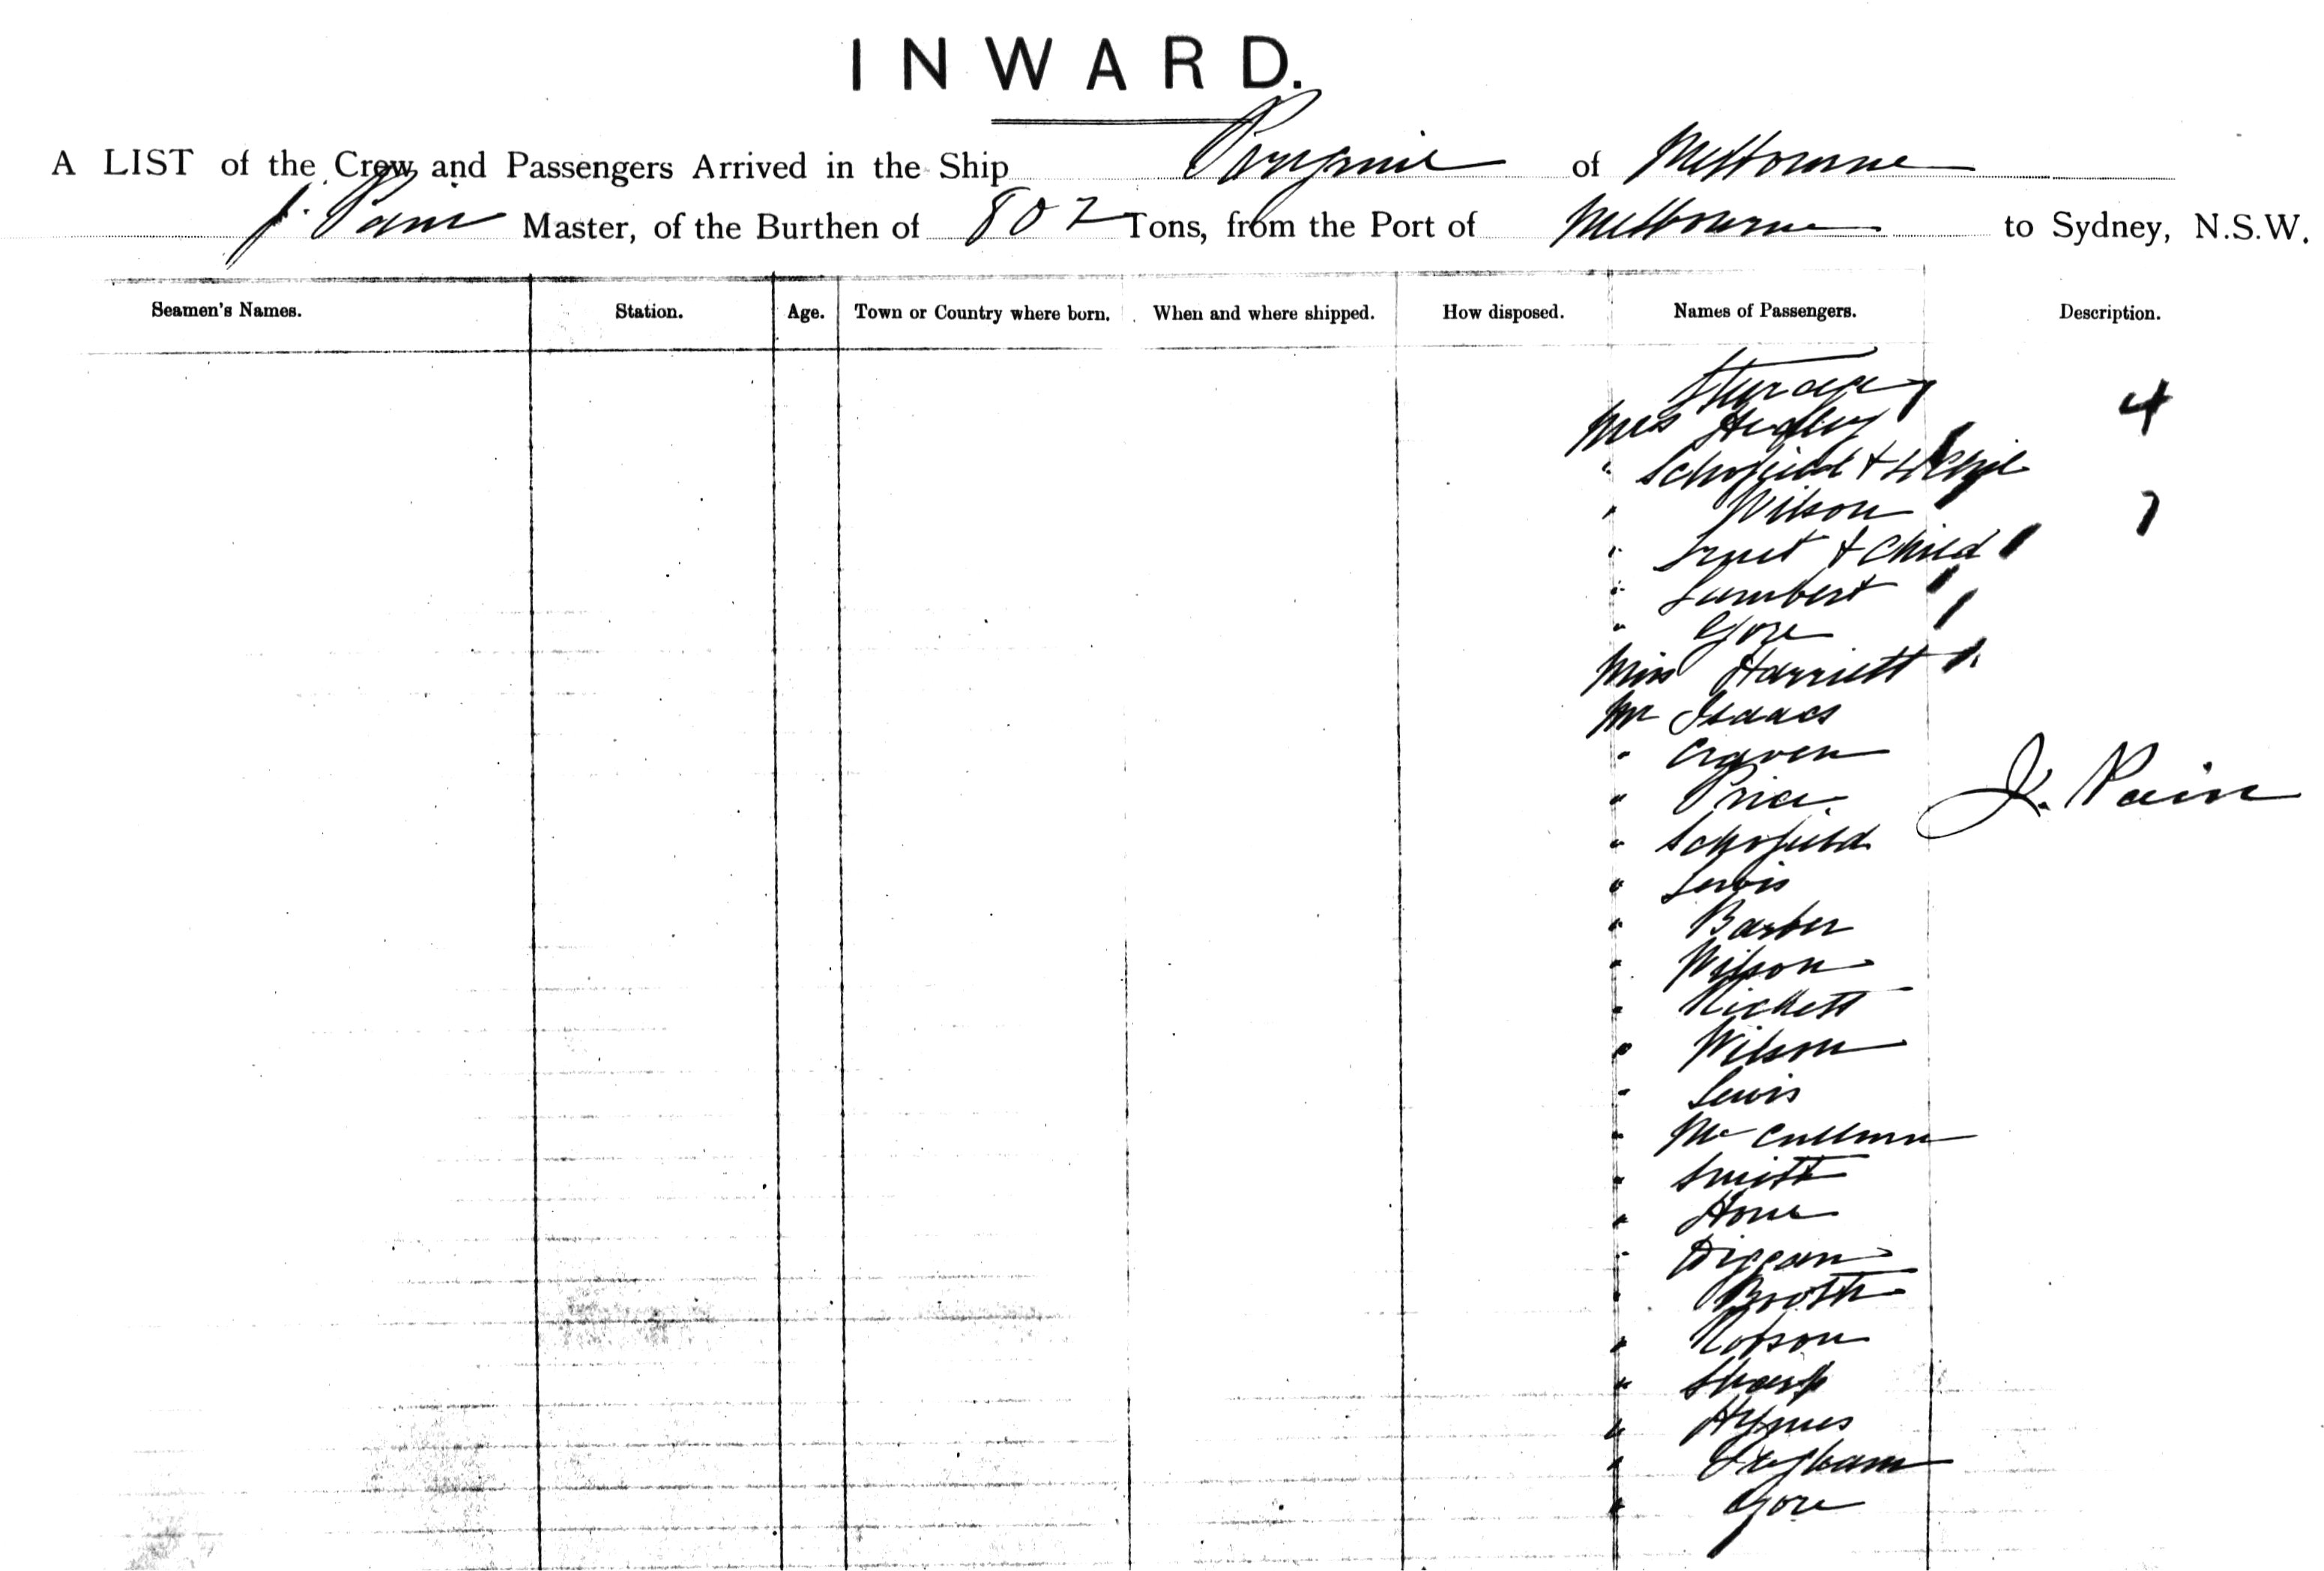 INWARD.
A LIST of the Crew and Passengers Arrived in the Ship of Melbourne
J. Pain Master, of the Burthen of 802 Tons, from the Port of Melbourne to Sydney, N.S.W.
Seamen's Names. Station. Age. Town or Country where born. When and where shipped. How disposed. Names of Passengers. Description.
Steerage 4
Mrs Hedley
" Schofield +
" Wilson 7
" + Child
" Lambert
" Gore
Miss Harriett
Mr Isaacs
" Craven
" Price J. Pain
" Schofield
" Lewis
" Barber
" Wilson
" Rickett
" Wilson
" Lewis
" Mc
" Smith
" Hone
"
" Booth
" Robson
" Sharp
" Hymes
"
" Gore